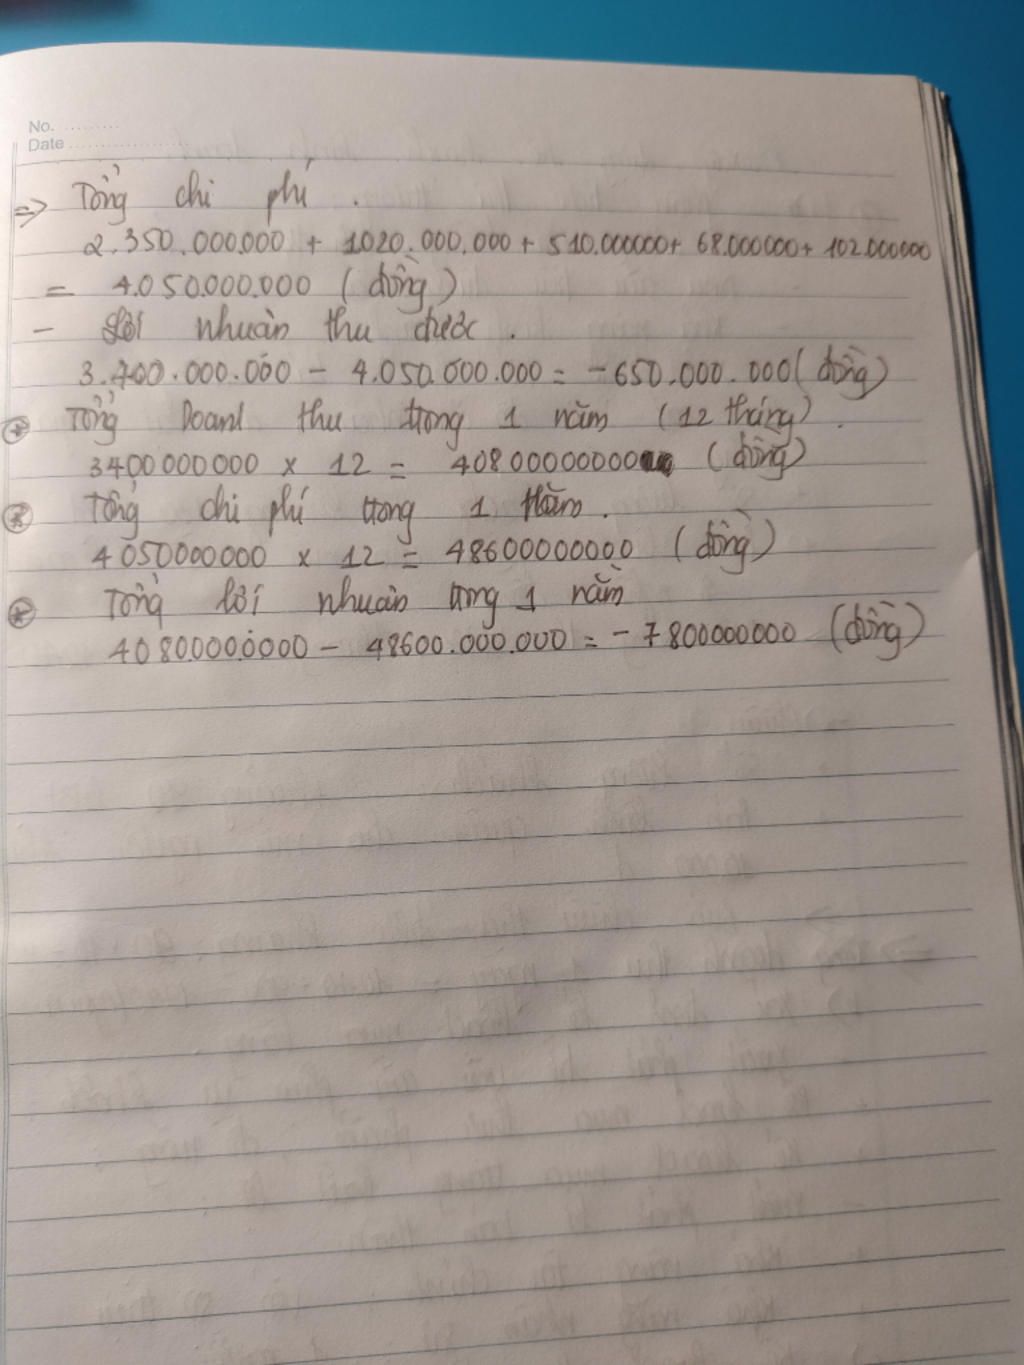 No. ........
Date ....................
=> Tổng chi phí .
2.350.000.000 + 1020.000.000 + 510.000000+ 68.000000+ 102.000000
= 4.050.000.000 (đồng)
- Lời nhuần thu được .
3.400.000.000 - 4.050.000.000 = -650.000.000( đồng)
Tổng Doanh thu trong 1 năm (12 tháng) .
3400000000 x 12 = 40800000000 (đồng)
Tổng chi phí trong 1 năm .
4050000000 x 12 = 48600000000 (đồng)
Tổng lời nhuần trong 1 năm
40800000000 - 48600.000.000 = - 7800000000 (đồng)